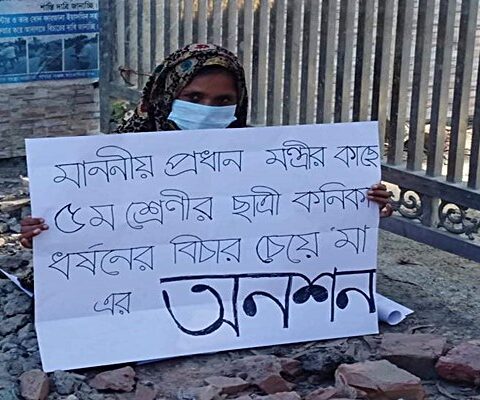 শাস্তি দাবি জানাচ্ছি।
মাননীয় প্রধান মন্ত্রীর কাছে
৫ম শ্রেণীর ছাত্রী কনিকা
ধর্ষনের বিচার চেয়ে মা
এর অনশন